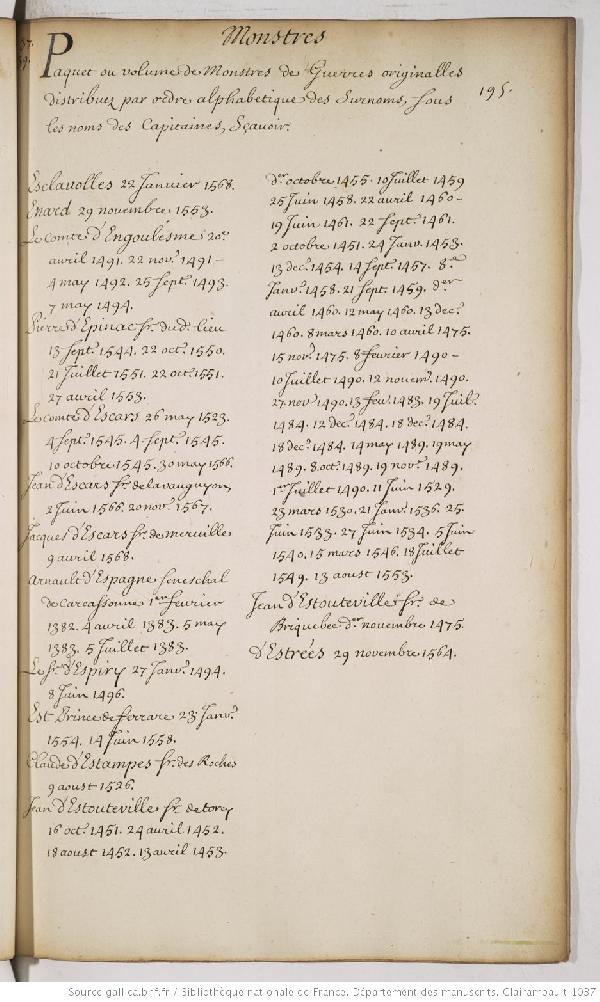 Monstres
Paquet ou volume de Monstres de Guerres originalles
distribuez par ordre alphabetique des Surnoms, sous
les noms des Capitaines, Sçavoir.
195.
Esclavolles 22 Janvier 1568.
Enard 29 novembre 1553.
Le Comte d'Engoulesme 20e
avril 1491. 22 novr. 1491 –
4 may 1492. 25 sept. 1493.
7 may 1494.
Pierre d'Epinac sr. dud. lieu
13 sept. 1544. 22 oct. 1550.
21 Juillet 1551. 22 oct. 1551.
27 avril 1553.
Le comte d'Escars 26 may 1523.
4 sept. 1545. 4 sept. 1545.
10 octobre 1545. 30 may 1566.
Jean d'Escars sr. de lavauguyon,
2 Juin 1566. 20 novr. 1567.
Jacques d'Escars sr. de merville
9 avril 1568.
Arnault d'Espagne seneschal
de Carcassonne 1er fevrier
1382. 4 avril 1383. 5 may
1383. 5 Juillet 1383.
Le sr. d'Espiry 27 Janvr. 1494.
8 Juin 1496.
Est Prince de ferrare 23 Janvr.
1554. 14 Juin 1558.
Claude d'Estampes sr. des Roches
9 aoust 1526.
Jean d'Estouteville sr. de torcy
16 oct. 1451. 24 avril 1452.
18 aoust 1452. 13 avril 1453.
der octobre 1455. 10 Juillet 1459
25 Juin 1458. 22 avril 1460 –
19 Juin 1461. 22 sept. 1461.
2 octobre 1451. 24 Janv. 1453.
13 dec. 1454. 14 sept. 1457. 8e
Janvr. 1458. 21 sept. 1459. der
avril 1460. 12 may 1460. 13 dec.
1460. 8 mars 1460. 10 avril 1475.
15 novr. 1475. 8 fevrier 1490 –
10 Juillet 1490. 12 novem. 1490.
27 nov 1490. 13 fev. 1483. 19 Juil.
1484. 12 dec. 1484. 18 dec. 1484.
18 dec. 1484. 14 may 1489. 19 may
1489. 8 oct. 1489. 19 novr. 1489.
1er Juillet 1490. 11 Juin 1529.
23 mars 1530. 21 Janvr. 1536. 25.
Juin 1533. 27 Juin 1534. 5 Juin
1540. 15 mars 1546. 18 Juillet
1549. 13 aoust 1553.
Jean d'Estouteville sr. de
Briquebec der novembre 1475
D'Estrées 29 novembre 1564.
Source gallica.bnf.fr / Bibliothèque nationale de France. Département des manuscrits. Clairambault 1037